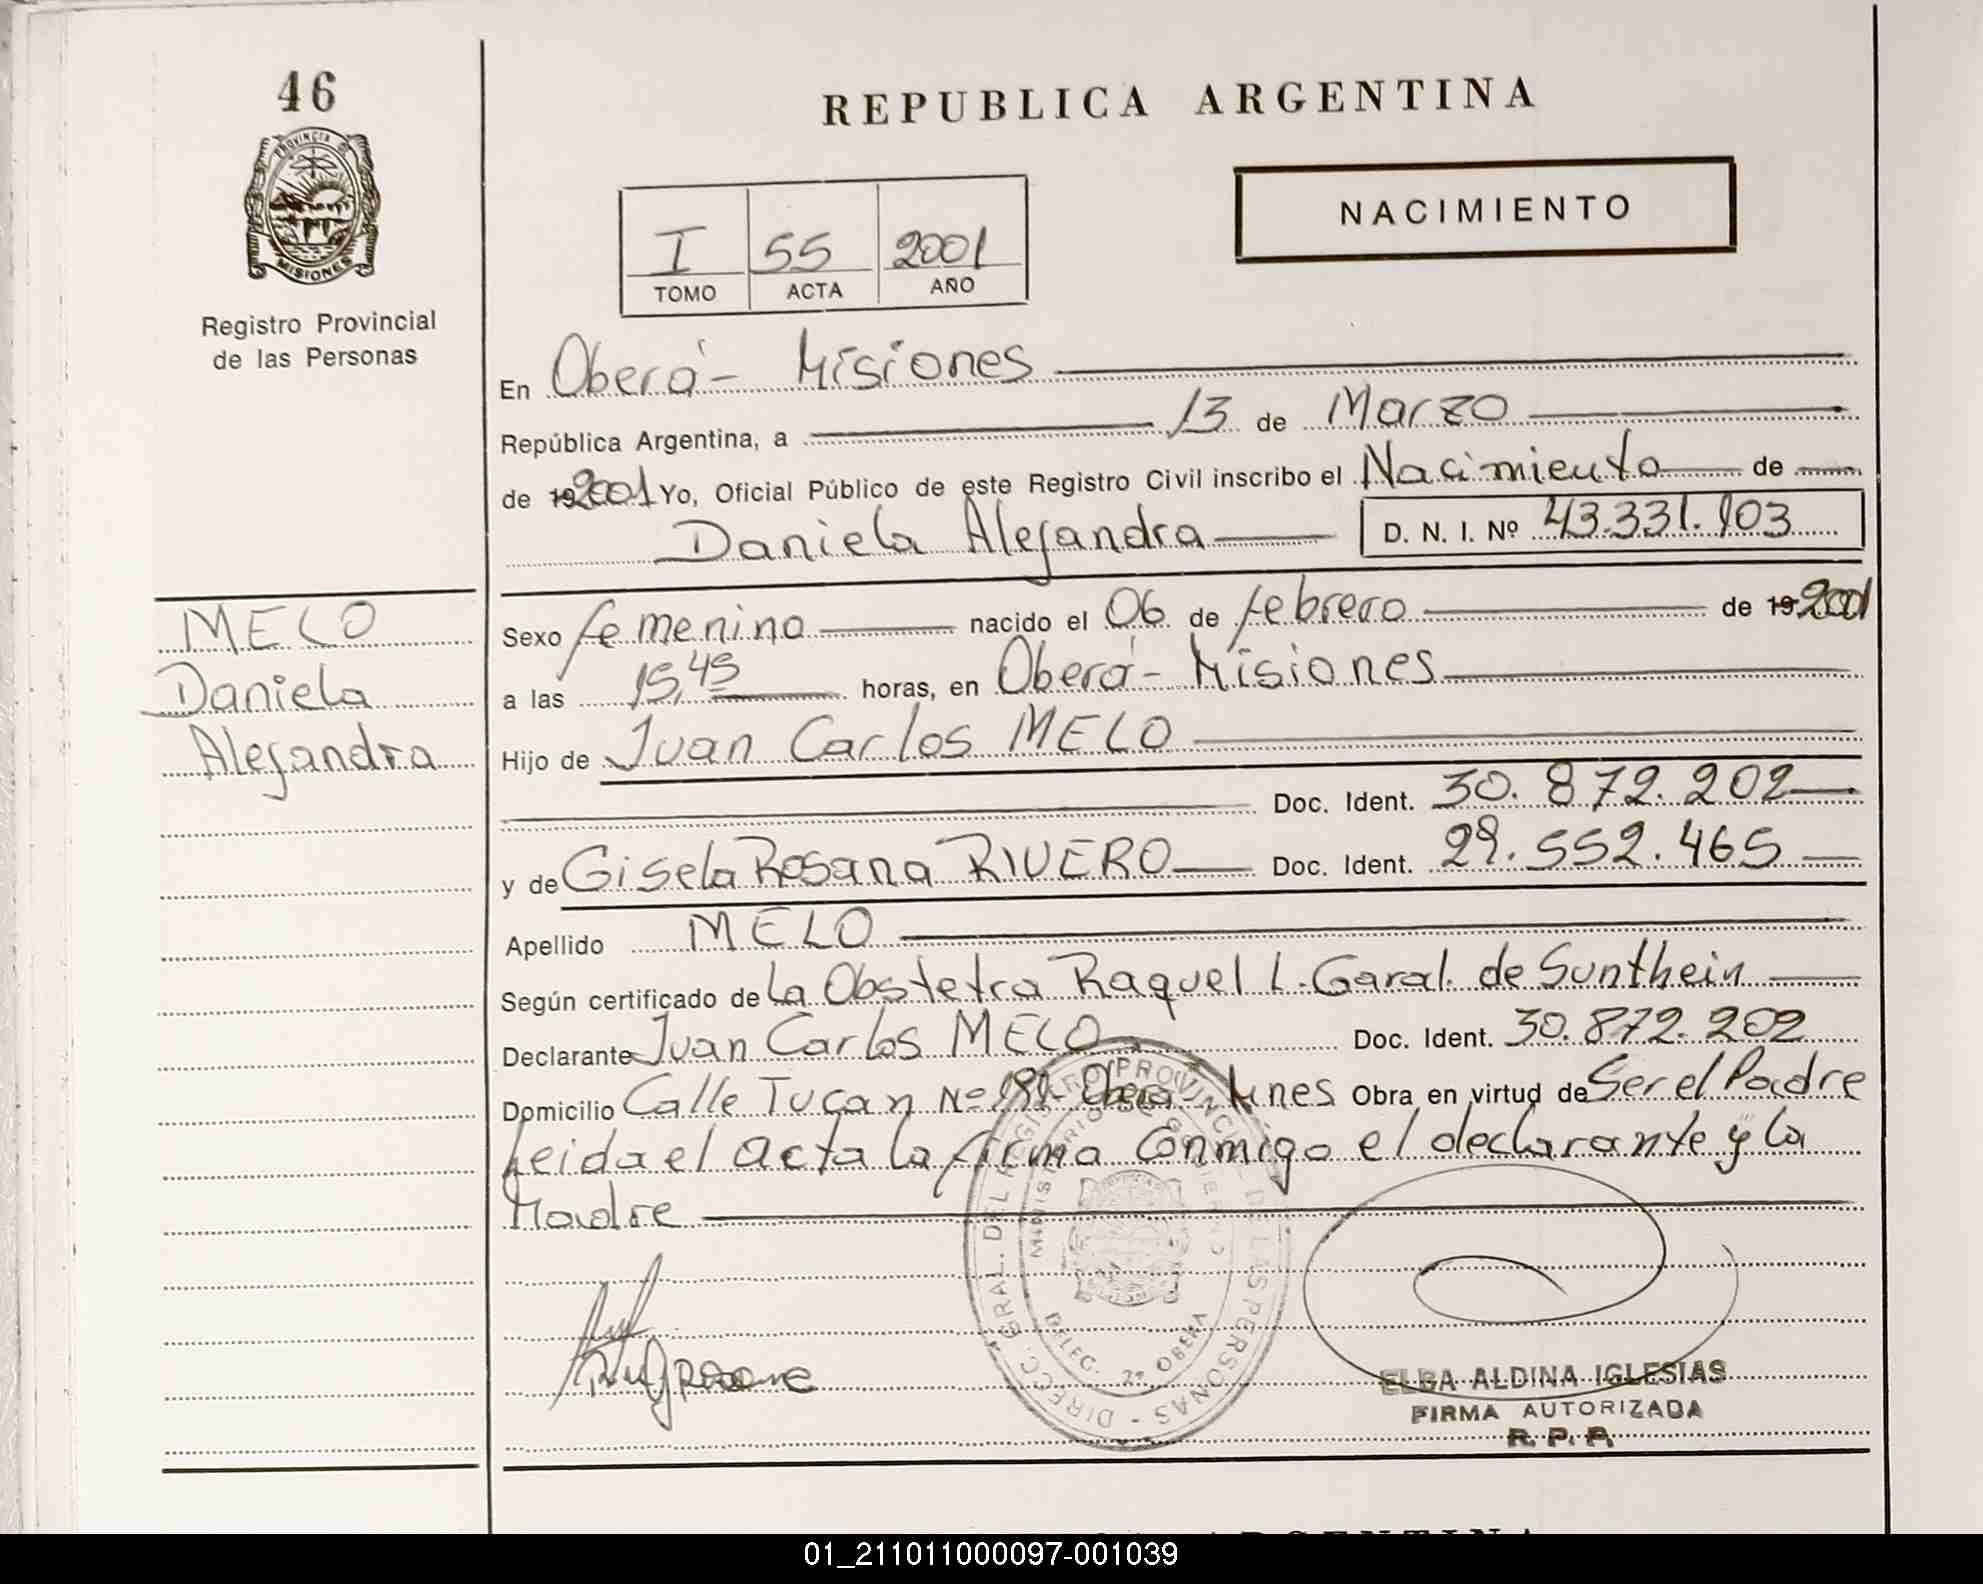 46
PROVINCIA DE
MISIONES
Registro Provincial
de las Personas
REPUBLICA ARGENTINA
NACIMIENTO
I 55 2001
TOMO ACTA AÑO
En Oberá - Misiones
República Argentina, a 13 de Marzo
de 19 2001 Yo, Oficial Público de este Registro Civil inscribo el Nacimiento de
Daniela Alejandra D. N. I. Nº 43.331.903
MELO
Daniela
Alejandra
Sexo femenino nacido el 06 de febrero de 19 2001
a las 15,45 horas, en Oberá - Misiones
Hijo de Juan Carlos MELO
Doc. Ident. 30.872.202
y de Gisela Rosana RIVERO Doc. Ident. 29.552.465
Apellido MELO
Según certificado de La Obstetra Raquel L. Garal. de Sunthein
Declarante Juan Carlos MELO Doc. Ident. 30.872.202
Domicilio Calle Tucan Nº Oberá - Mnes Obra en virtud de Ser el Padre
Leida el acta la firma Conmigo el declarante y la
Madre
DIRECC. GRAL. DEL REGISTRO PROVINCIAL DE LAS PERSONAS -
MINISTERIO DE GOBIERNO
DELEG. 2ª OBERA
ELBA ALDINA IGLESIAS
FIRMA AUTORIZADA
R. P. P.
01_211011000097-001039